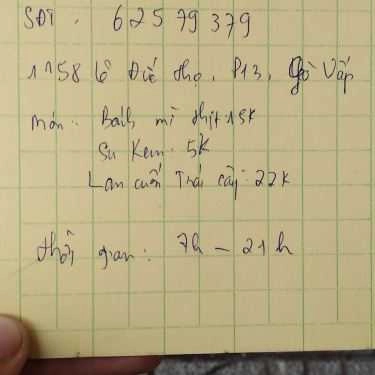 SĐT. 62579379
1158 Lê Đức thọ, P13, Gò Vấp
món: Bánh mì thịt 15k
Su Kem: 5k
Lan cuốn Trái cây: 22k
thời gian: 7h - 21h